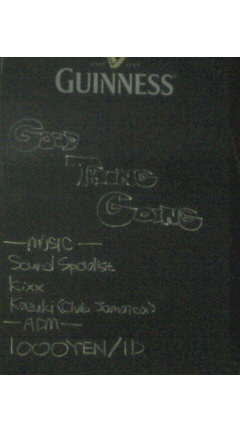 GUINNESS
GOOD
THING
GOING
—MUSIC—
Sound Specialist
Kixx
Kazuki (Club Jamaica)
—ADM—
1000YEN/1D